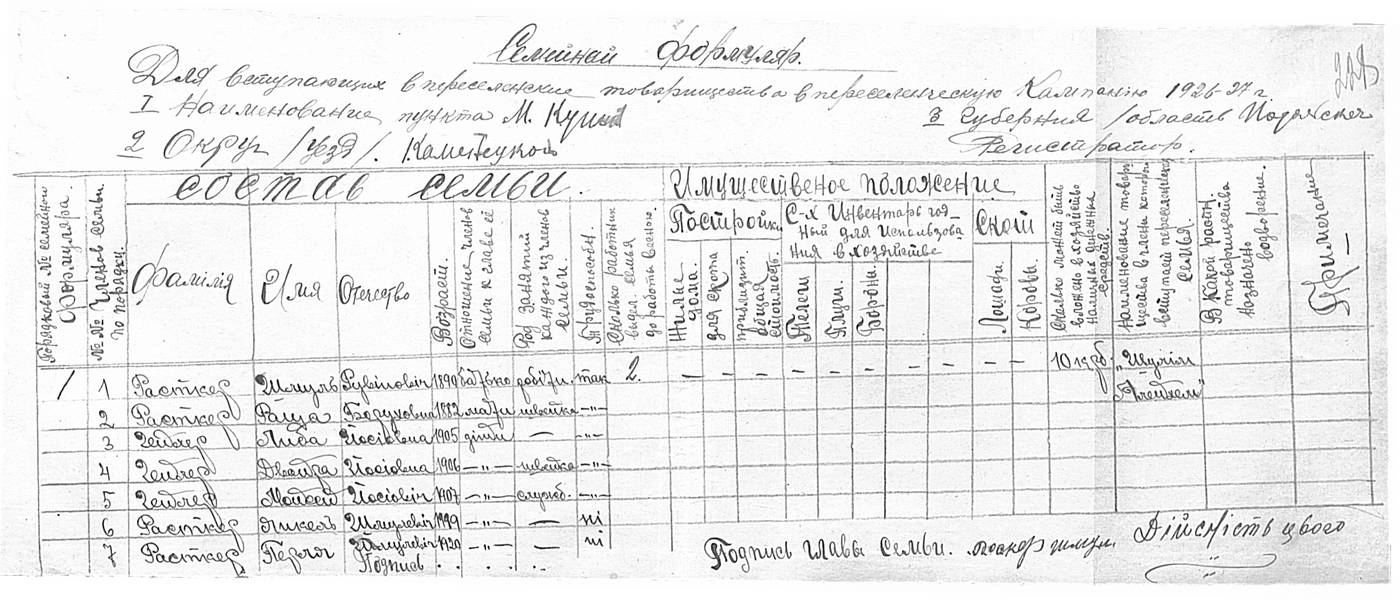 Семійнай формуляр.
229
Для вступающих в переселенские товарищества в переселенческую Кампанію 1926-27 г
I Наименование пункта М. Купин
3 Губерния /область Подольск
2 Округ /уезд/. Каменецкой
Регистратор.
Порядковый № семейного формуляра.
№№ членов семьи по порядку.
состав семьи.
Имущественое положение
Фамилія
Имя
Отчество
Возраст.
Отношение членов семьи к главе её
Род занятий каждого из членов семьи.
Трудоспособн.
Сколько работник выдел. семья до работы весеною.
Постройки
Жилые дома.
для скота
общая стоимость.
С-х Инвентарь год-
ный для Использова
ния в хозяйстве
Телеги
Плуги.
Бороны.
Скот
Лошади.
Коровы.
Сколько может быть вложено в хозяйство наличных денежных средств.
Наименование товарищества в члены которого вступает переселенческая семья.
В какой район. товарищества назначено водворение.
Примечание
1 1 Расткер Шмуль Рувінович 1890 батько робітн. так 2. — — — — — — — — 10 крб. „Шулім
Алейхем"
2 Расткер Раща Боруховна 1882 мати швейка —"—
3 Гейлер Либа Йосіовна 1905 діти — —"—
4 Гейлер Двойра Йосіовна 1906 —"— швейка —"—
5 Гейлер Мойсей Йосіовіч 1907 —"— служб. —"—
6 Расткер Янкель Шмулевіч 1919 —"— — ні
7 Расткер Перля Шмулевіч 1920 —"— — ні
Подпись
Подпись главы семьи.
Дійсність цього